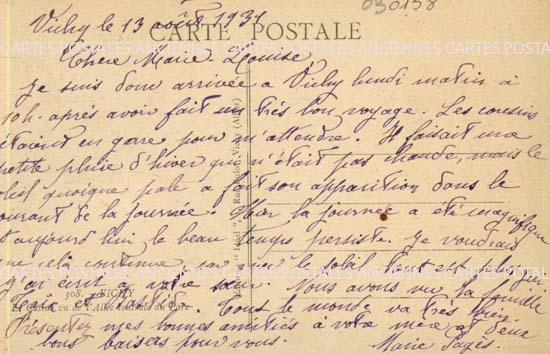 030158
Vichy le 13 août 1931
CARTE POSTALE
CARTES POSTALES ANCIENNES CARTES POSTALES ANCIENNES
Chère Marie Louise,
Je suis donc arrivée a Vichy lundi matin à
10h. après avoir fait un très bon voyage. Les cousins
étaient en gare pour m'attendre. Il faisait une
petite pluie d'hiver qui n'était pas chaude, mais le
soleil quoique pale a fait son apparition dans le
courant de la journée. Hier la journée a été magnifique
et aujourd'hui le beau temps persiste. Je voudrais
que cela continue, car le soleil tout est plus gai
J'ai écrit à votre sœur. Nous avons vu la famille
308. VICHY
Tout le monde va très bien.
Présentez mes bonnes amitiés à votre mère et deux
bons baisers pour vous.
Marie Pagès